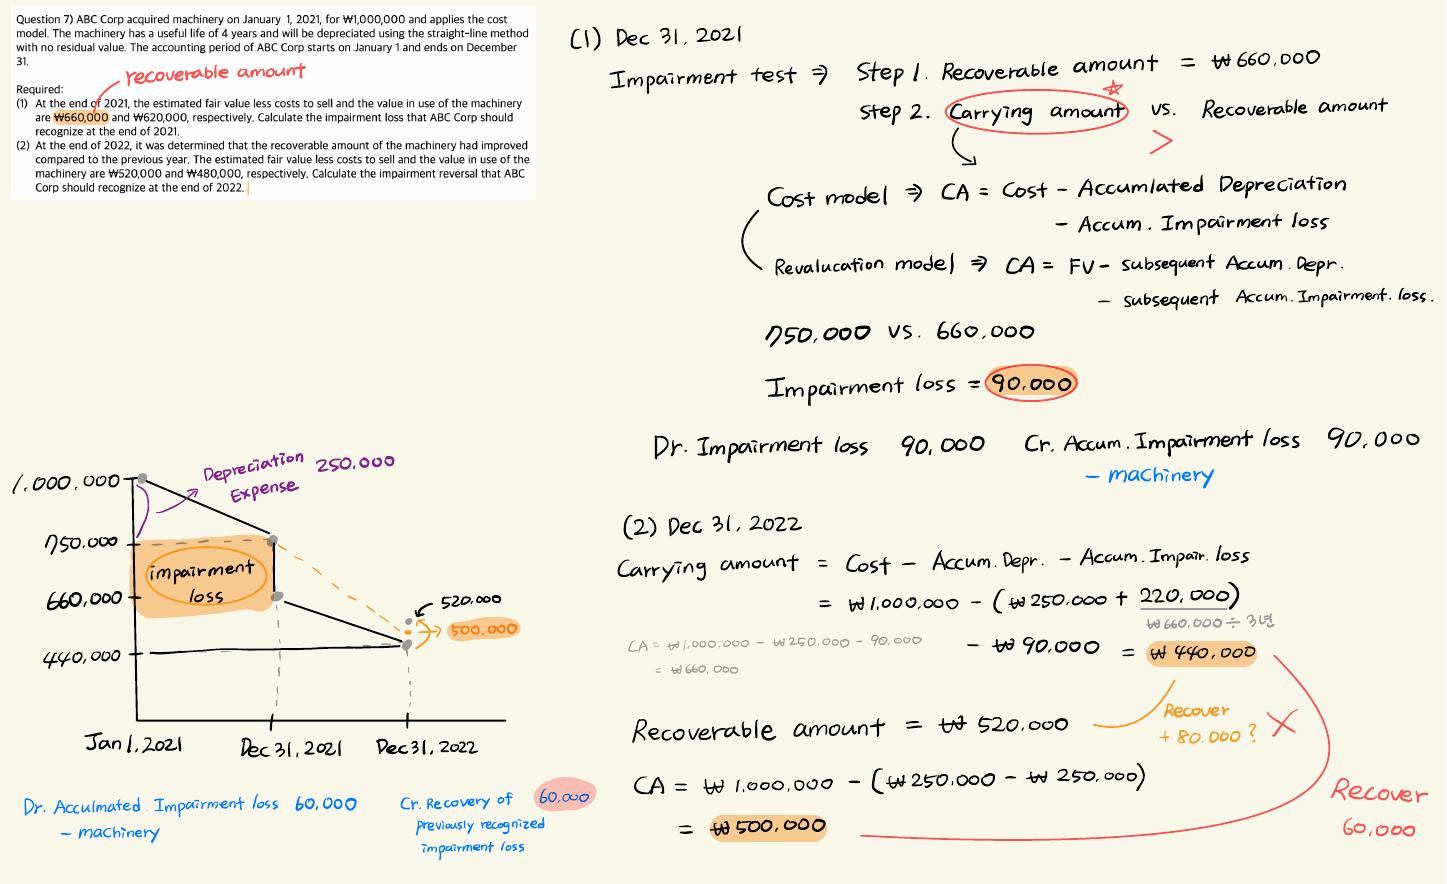 Question 7) ABC Corp acquired machinery on January 1, 2021, for ₩1,000,000 and applies the cost
model. The machinery has a useful life of 4 years and will be depreciated using the straight-line method
with no residual value. The accounting period of ABC Corp starts on January 1 and ends on December
31.
recoverable amount
Required:
(1) At the end of 2021, the estimated fair value less costs to sell and the value in use of the machinery
are ₩660,000 and ₩620,000, respectively. Calculate the impairment loss that ABC Corp should
recognize at the end of 2021.
(2) At the end of 2022, it was determined that the recoverable amount of the machinery had improved
compared to the previous year. The estimated fair value less costs to sell and the value in use of the
machinery are ₩520,000 and ₩480,000, respectively. Calculate the impairment reversal that ABC
Corp should recognize at the end of 2022.
(1) Dec 31, 2021
Impairment test ⇒ Step 1. Recoverable amount = ₩660,000
Step 2. Carrying amount vs. Recoverable amount
>
Cost model ⇒ CA = Cost - Accumlated Depreciation
- Accum. Impairment loss
Revalucation model ⇒ CA = FV - subsequent Accum. Depr.
- subsequent Accum. Impairment. loss.
750,000 vs. 660,000
Impairment loss = 90,000
Dr. Impairment loss 90,000 Cr. Accum. Impairment loss 90,000
- machinery
1,000,000
Depreciation 250,000
Expense
750,000
impairment
loss
660,000
520,000
500,000
440,000
Jan 1, 2021 Dec 31, 2021 Dec 31, 2022
Dr. Acculmated Impairment loss 60,000
- machinery
Cr. Recovery of 60,000
previously recognized
impairment loss
(2) Dec 31, 2022
Carrying amount = Cost - Accum. Depr. - Accum. Impair. loss
= ₩1,000,000 - (₩250,000 + 220,000)
₩660,000 ÷ 3년
- ₩90,000 = ₩440,000
CA = ₩1,000,000 - ₩250,000 - 90,000
= ₩660,000
Recoverable amount = ₩520,000
Recover
+80,000? X
CA = ₩1,000,000 - (₩250,000 - ₩250,000)
= ₩500,000
Recover
60,000